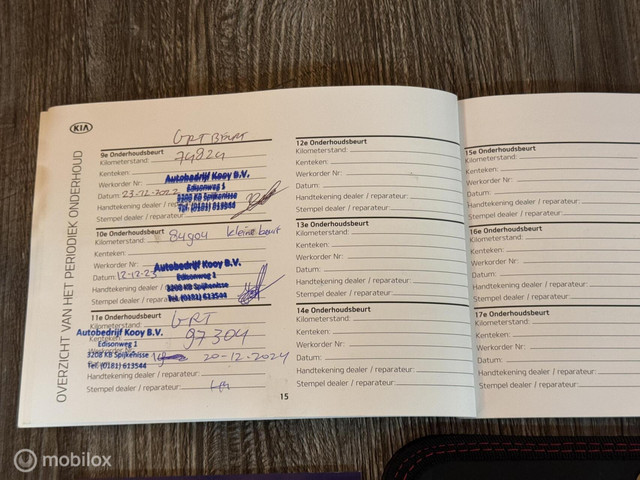 KIA
OVERZICHT VAN HET PERIODIEK ONDERHOUD
GRT BEURT
9e Onderhoudsbeurt
Kilometerstand: 74824
Kenteken:
Werkorder Nr:
Datum: 23-12-2022
Handtekening dealer
Stempel dealer / reparateur:
Autobedrijf Kooy B.V.
Edisonweg 1
3208 KB Spijkenisse
Tel. (0181) 613544
10e Onderhoudsbeurt
Kilometerstand: 84904 kleine beurt
Kenteken:
Werkorder Nr:
Datum: 12-12-23
Handtekening dealer
Stempel dealer / repara
Autobedrijf Kooy B.V.
Edisonweg 1
3208 KB Spijkenisse
Tel. (0181) 613544
11e Onderhoudsbeurt
GRT
97304
Autobedrijf Kooy B.V.
Edisonweg 1
3208 KB Spijkenisse
Tel. (0181) 613544
20-12-2024
Handtekening dealer / reparateur:
Stempel dealer / reparateur:
15
12e Onderhoudsbeurt
Kilometerstand:
Kenteken:
Werkorder Nr:
Datum:
Handtekening dealer / reparateur:
Stempel dealer / reparateur:
13e Onderhoudsbeurt
Kilometerstand:
Kenteken:
Werkorder Nr:
Datum:
Handtekening dealer / reparateur:
Stempel dealer / reparateur:
14e Onderhoudsbeurt
Kilometerstand:
Kenteken:
Werkorder Nr:
Datum:
Handtekening dealer / reparateur:
Stempel dealer / reparateur:
15e Onderhoudsbeurt
Kilometerstand:
Kenteken:
Werkorder Nr:
Datum:
Handtekening dealer / reparateur:
Stempel dealer / reparateur:
16e Onderhoudsbeurt
Kilometerstand:
Kenteken:
Werkorder Nr:
Datum:
Handtekening dealer / reparateur:
Stempel dealer / reparateur:
17e Onderhoudsbeurt
Kilometerstand:
Kenteken:
Werkorder Nr:
Datum:
Handtekening dealer / reparateur:
Stempel dealer / reparateur:
mobilox